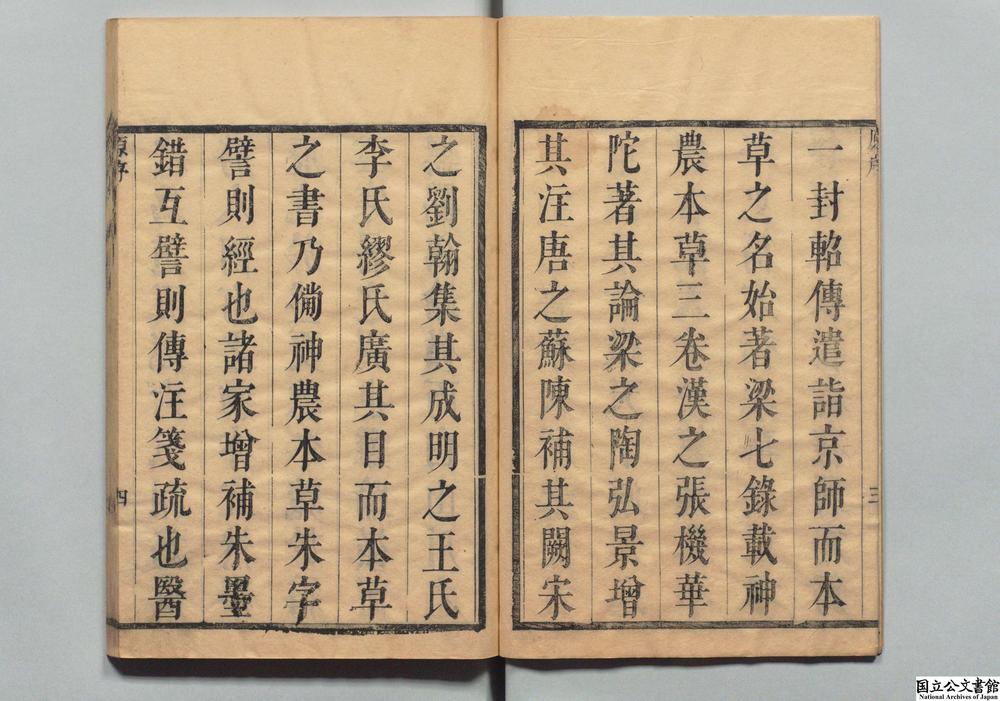 原序
三
一封軺傳遣詣京師而本
草之名始著梁七錄載神
農本草三卷漢之張機華
陀著其論梁之陶弘景增
其注唐之蘇陳補其闕宋
之劉翰集其成明之王氏
李氏繆氏廣其目而本草
之書乃備神農本草朱字
譬則經也諸家增補朱墨
錯互譬則傳注箋疏也醫
原序
四
国立公文書館
National Archives of Japan